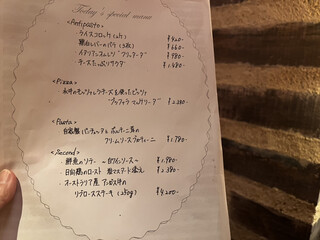 Today's special menu
<Antipasto>
ライスコロッケ(2ケ) ¥420
鶏白レバーのパテ(3枚) ¥660
イタリアオムレツ"フリッタータ" ¥780
チーズたっぷりサラダ ¥1,480
<Pizza>
水牛のモッツァレラチーズを使ったピッツァ
"ブッファラマルゲリータ" ¥2,280
<Pasta>
自家製パンチェッタとポルチーニ茸の
クリームソースフェットチーネ ¥1,780
<Second>
鮮魚のソテー ~白ワインソース~ ¥1,980
・日向鶏のロースト 粒マスタード添え ¥2,380
・オーストラリア産 アンガス牛の
リブロースステーキ(250g) ¥4,200-